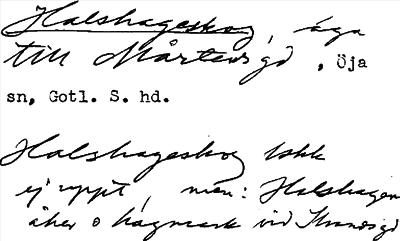 Halshageskog, äga
till Mårtensgd, Öja
sn, Gotl. S. hd.
Halshageskog bskk
ej uppt, men: Halshagen
åker o hagmark vid Strandsgd